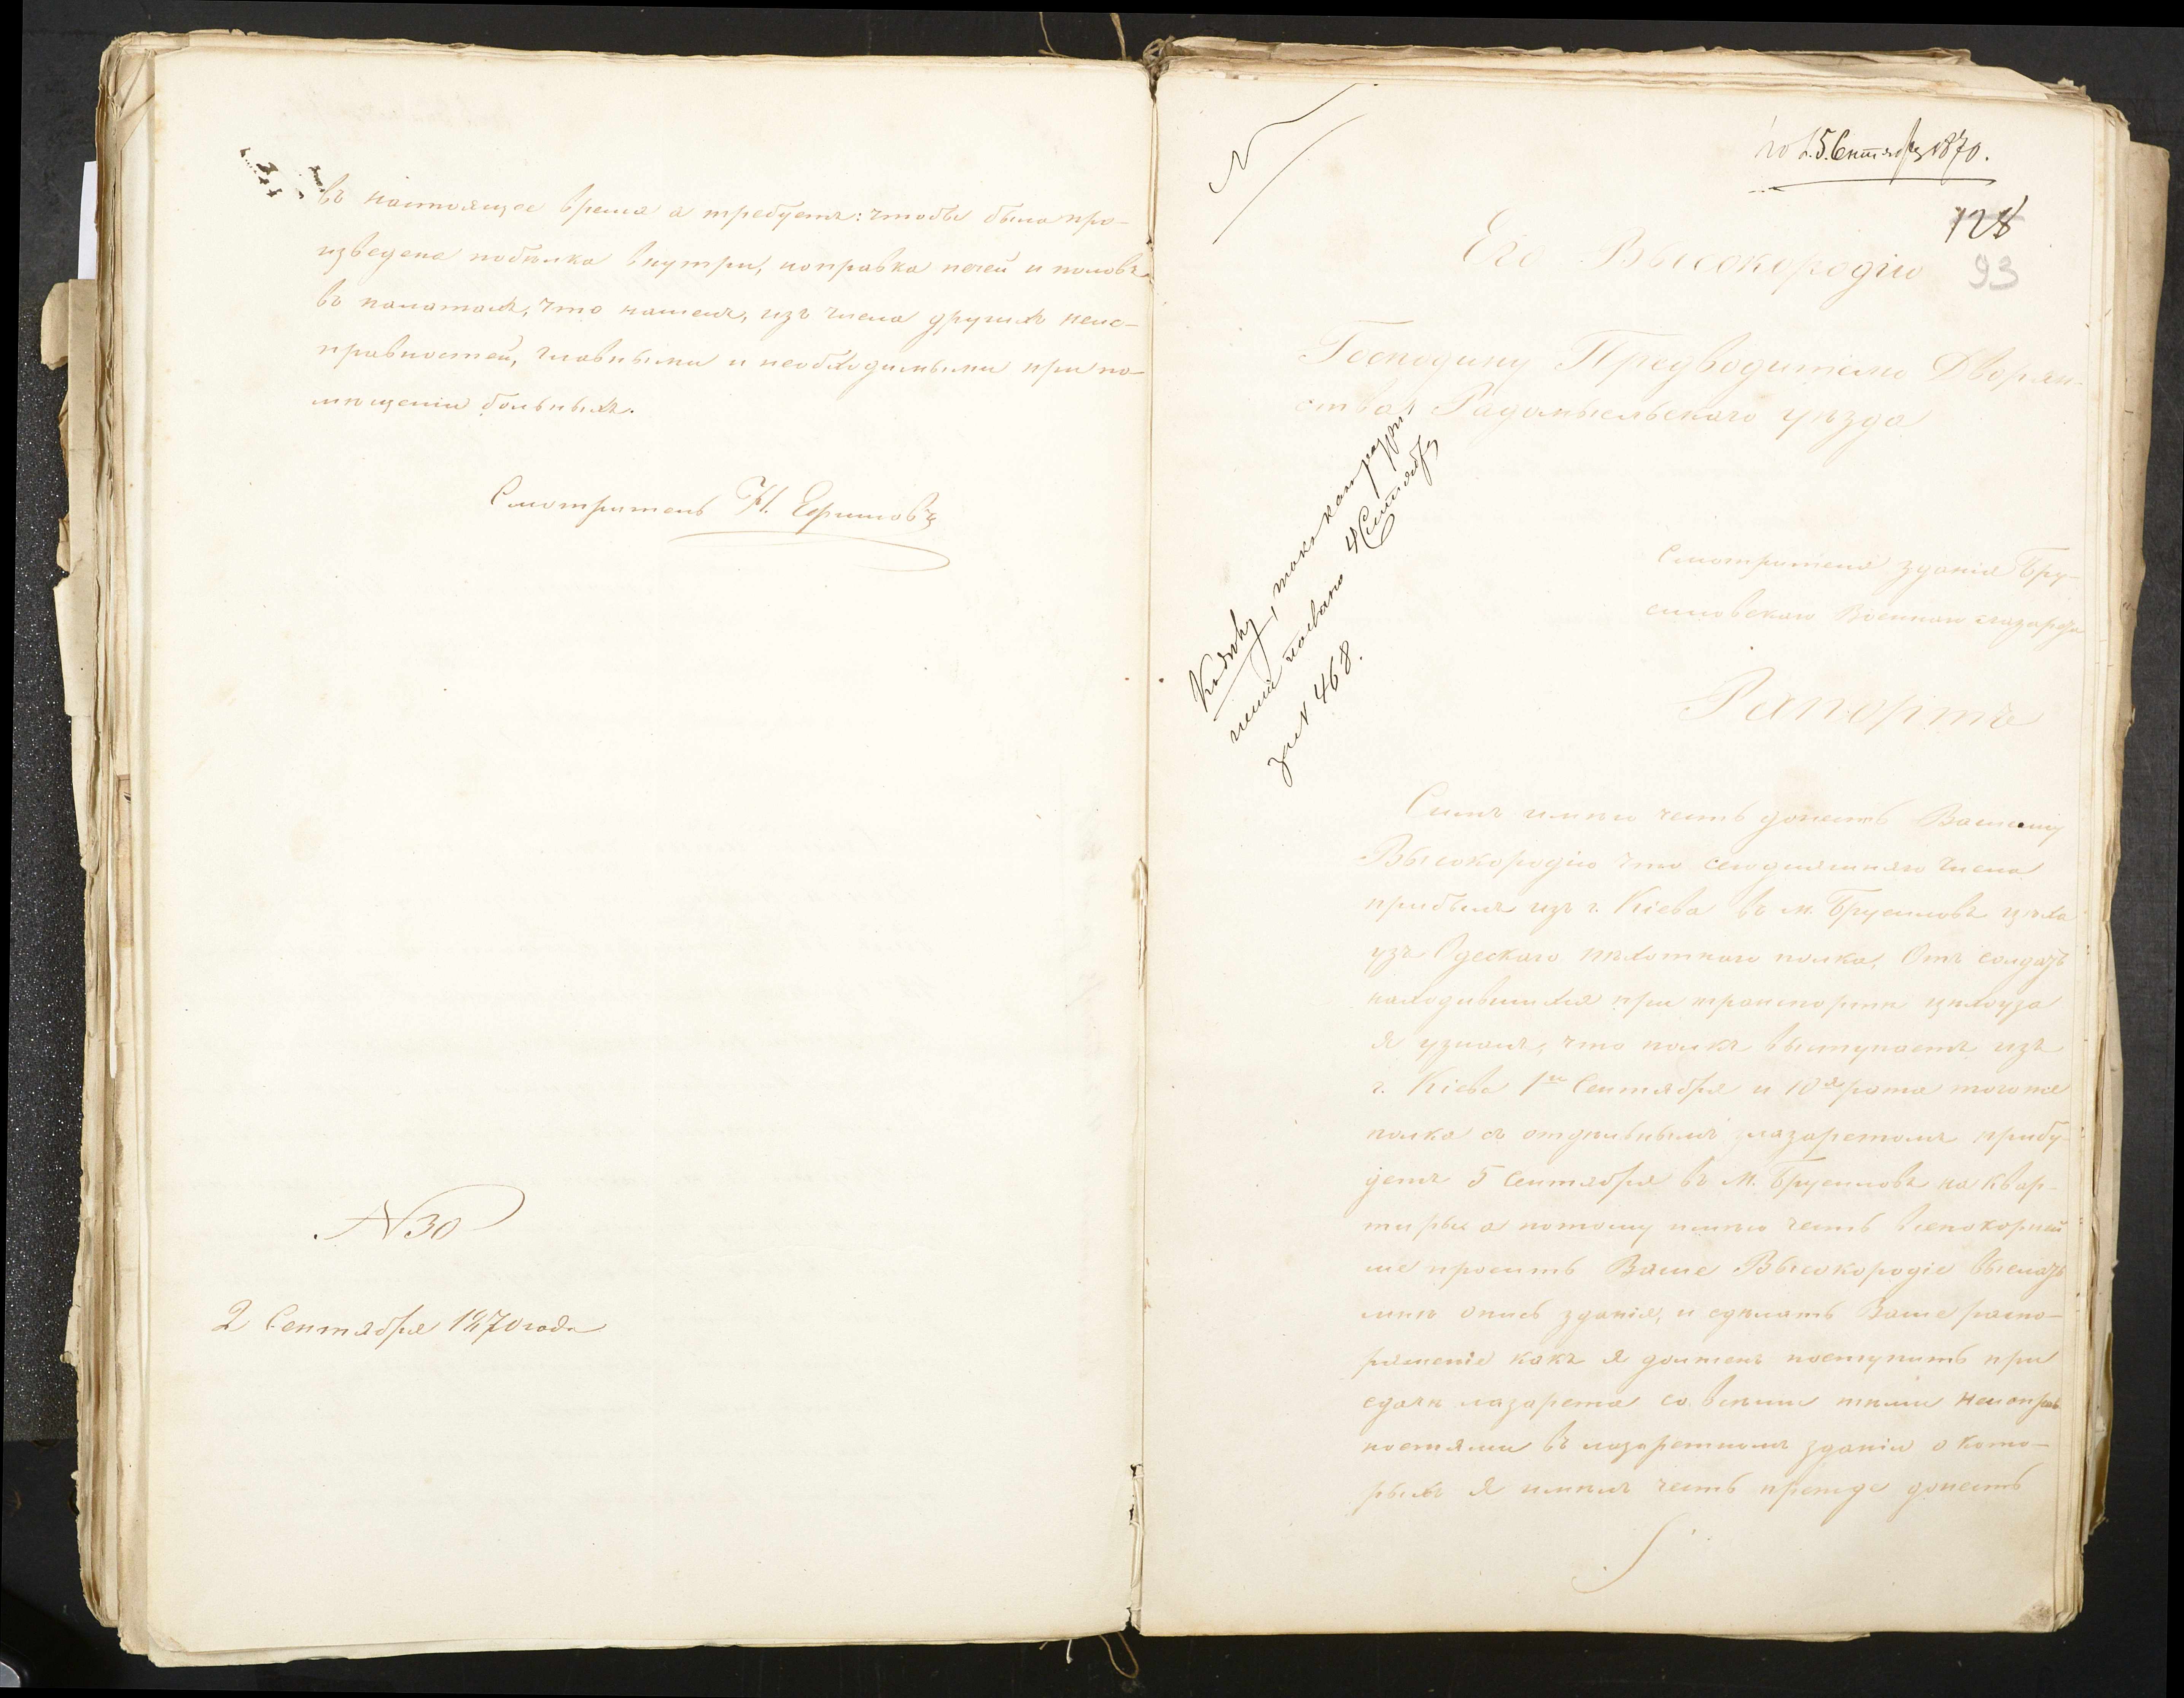 въ настоящее время а требуетъ: чтобы была про-
изведена побѣлка внутри, поправка печей и половъ
въ палатахъ, что нашелъ, изъ числа другихъ неис-
правностей, главными и необходимыми при по-
мѣщеніи больныхъ.
Смотритель Н. Ефимовъ
№ 30
2 Сентября 1870 года
5 Сентября 1870.
128
93
Его Высокородію
Господину Предводителю Дворян-
ства Радомысльскаго уѣзда
Смотрителя зданія Бру-
силовскаго Военнаго лазарета
Рапортъ
за № 468.
Симъ имѣю честь донесть Вашему
Высокородію что сегодняшняго числа
прибылъ изъ г. Кіева въ м. Брусиловъ цѣхга
узъ Одескаго пѣхотнаго полка, Отъ солдатъ
находившихся при транспортѣ цѣхоуза
я узналъ, что полкъ выступаетъ изъ
г. Кіева 1го Сентября и 10я рота тогоже
полка съ отдѣльнымъ лазаретомъ прибу-
детъ 5 Сентября въ м. Брусиловъ на квар-
тиры а потому имѣю честь всепокорнѣй
ше просить Ваше Высокородіе выслать
мнѣ опись зданія, и сдѣлать Ваше распо-
ряженіе какъ я долженъ поступить при
сдачѣ лазарета со всѣми тѣми неисправ
ностями въ лазаретномъ зданіи о кото-
рыхъ я имѣлъ честь прежде донесть